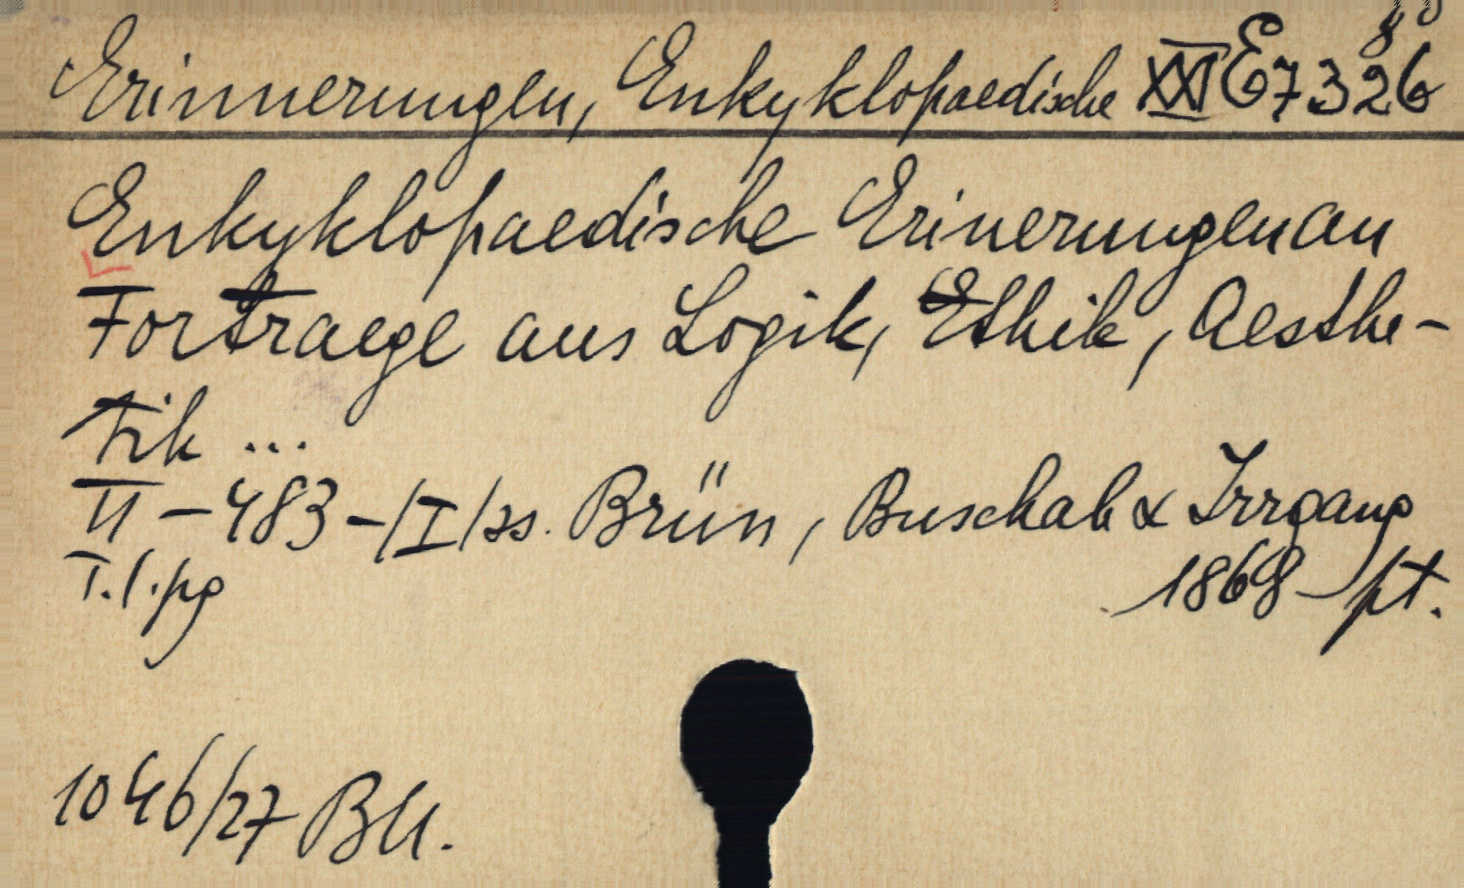 8°
Erinnerungen, Enkyklopaedische XXI E 7326
Enkyklopaedische Erinerungen an
Fortraege aus Logik, Ethik, Aesthe-
tik ...
II - 483 - /I/ ss. Brün, Buschak & Irrgang
T.l.pg 1868 pt.
1046/27 BU.